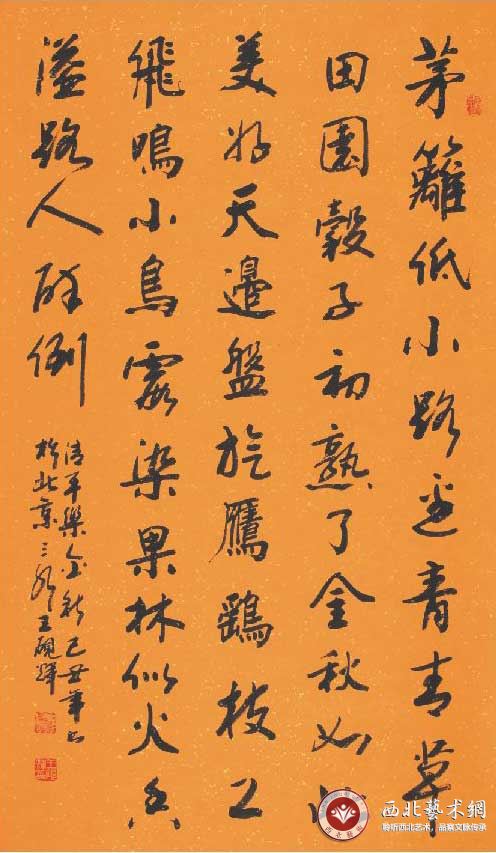 茅籬低小路邊青青草
田園穀子初熟了金秋如此
美好天邊盤旋鷹鷂枝上
飛鳴小鳥霞染果林似火香
溢路人醉倒
清平樂金秋己丑年書
於北京三 王硯輝
西北藝术網
聆听西北艺术，品察文脉传承